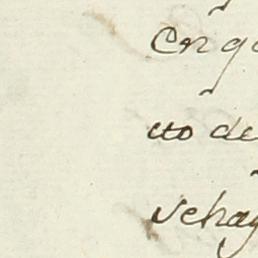 en q
cto de
se hag